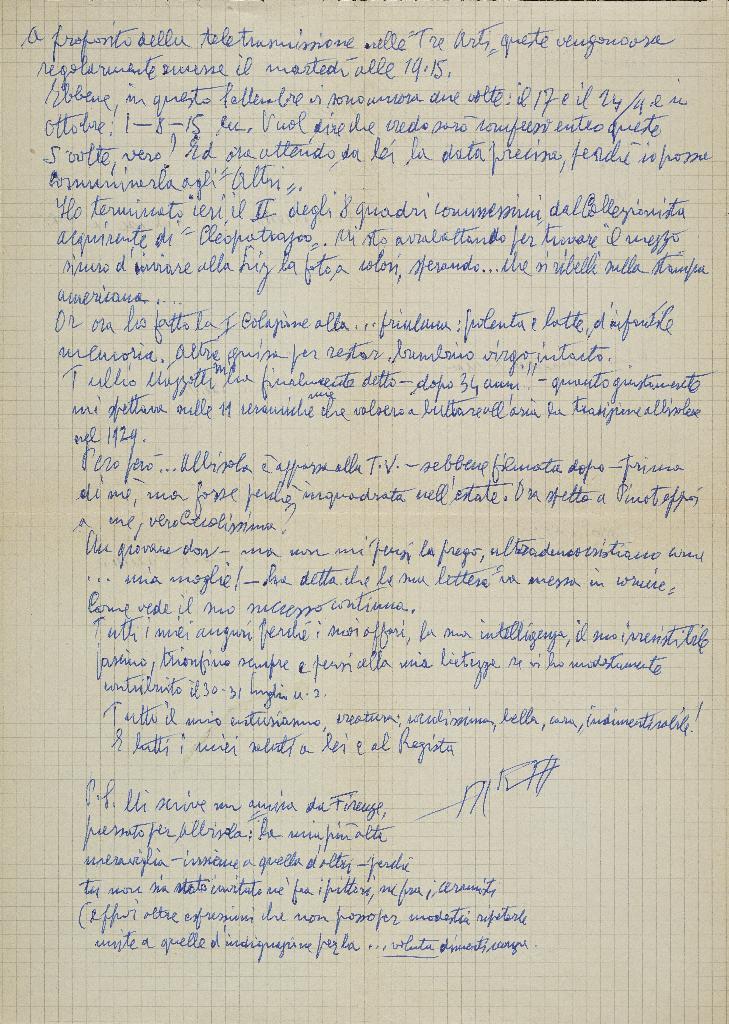 A proposito della teletrasmissione nelle "Tre Arti", queste vengono ora
regolarmente emesse il martedì alle 19.15.
Ebbene, in questo settembre vi sono ancora due volte: il 17 e il 24/9 e in
ottobre: 1-8-15 ecc. Vuol dire che credo sarò compreso entro queste
5 volte, vero? Ed ora attendo da lei la data precisa, perché io possa
comunicarla agli "Altri".
Ho terminato ieri il II degli 8 quadri commessimi dal Collezionista
acquirente di "Cleopatra". Mi sto arrabattando per trovare il mezzo
sicuro d'inviare alla la foto a colori, sperando... che si ribelli sulla stampa
americana....
Or ora ho fatto la I Colazione alla... friulana: polenta e latte, d'infantile
memoria. Altra guisa per restar bambino virgo intacto.
Tullio Mazzotti mi ha finalmente detto - dopo 34 anni!! - quanto giustamente
mi spettava sulle 11 ceramiche mie che valsero a buttare all'aria la tradizione albisolese
nel 1929.
Però però... Albisola è apparsa alla T.V. - sebbene filmata dopo - prima
di me, ma forse perché inquadrata nell'estate. Ora spetta a
a me, vero Carolissima?
Un giovane don - ma non mi pensi la prego, ultrademocristiano come
... mia moglie! - ha detto che la sua lettera va messa in cornice.
Come vede il suo successo continua.
Tutti i miei auguri perché i suoi affari, la sua intelligenza, il suo irresistibile
fascino, trionfino sempre e pensi alla mia lietezza se vi ho modestamente
contribuito il 30-31 luglio u.s.
Tutto il mio entusiasmo, creatura, bella, cara, indimenticabile!
E tutti i miei saluti a lei e al Regista
P.S. Mi scrive un amico da Firenze,
passato per Albisola: la mia più alta
meraviglia - insieme a quella d'altri - perché
tu non sia stato invitato né fra i pittori, né fra i ceramisti
(eppoi altre espressioni che non posso per modestia ripetere
miste a quelle d'indignazione per la ... voluta dimenticanza.